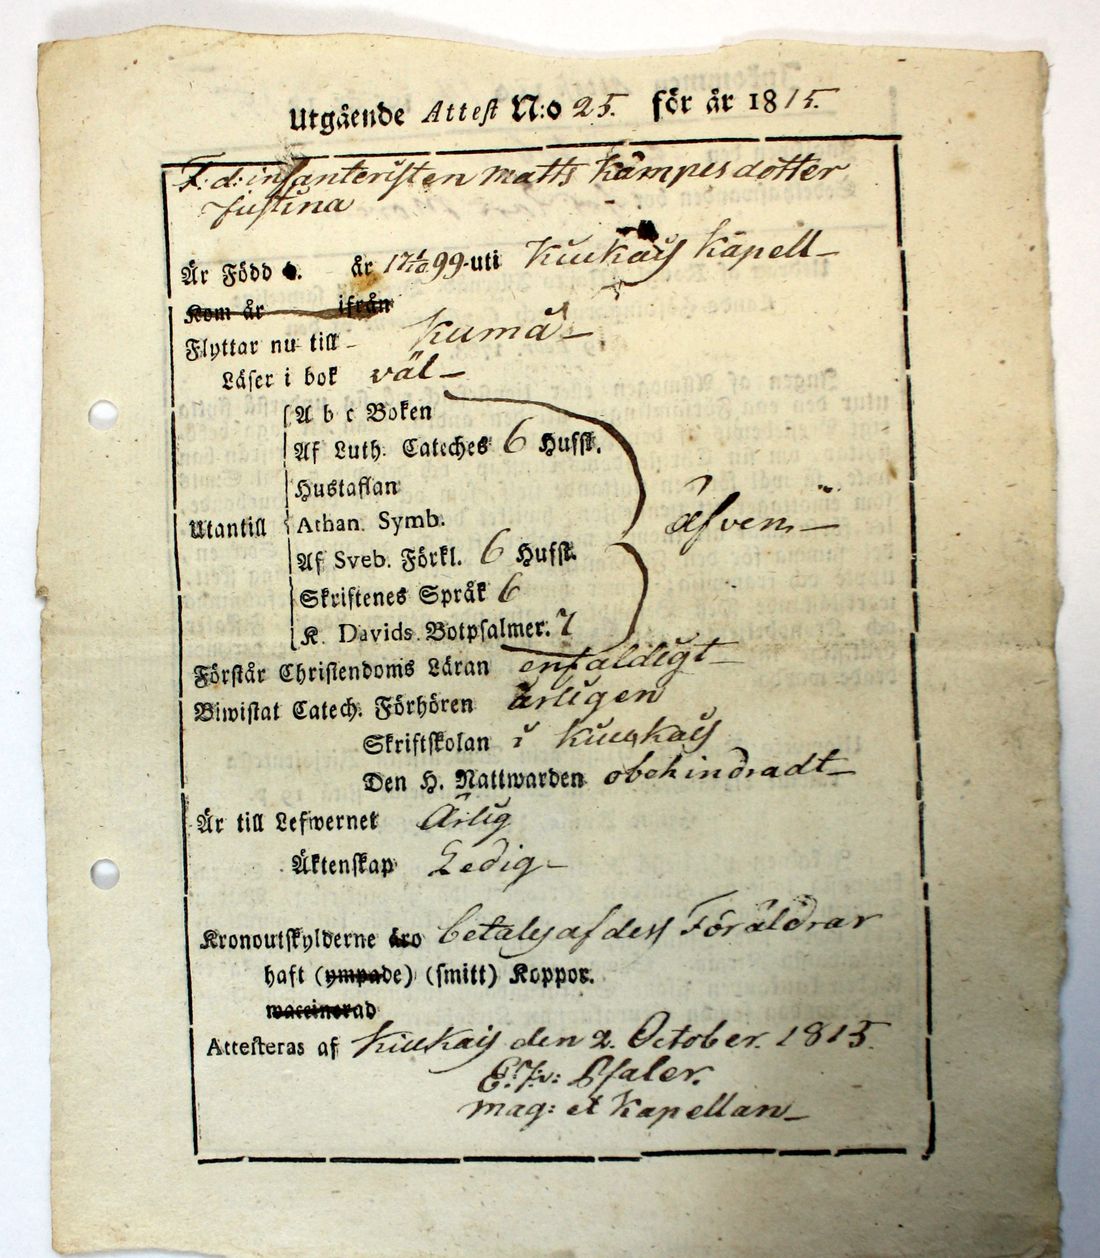 Utgående Attest N:o 25. för år 1815.
F: d: infanteristen Matts Kämpes dotter
Justina
Är Född d. år 17 1/10 99 uti Kiukais Kapell
Kom år ifrån
Flyttar nu till Kumå
Läser i bok väl
A b c Boken
Af Luth. Cateches 6 Hufst.
Hustaflan
Utantill Athan. Symb. äfven
Af Sveb. Förkl. 6 Hufst.
Skriftenes Språk 6
K. Davids Botpsalmer. 7
Förstår Christendoms Läran enfaldigt
Biwistat Catech. Förhören årligen
Skriftskolan i Kiukais
Den H. Nattwarden obehindradt
Är till Lefwernet Ärlig
Äktenskap Ledig
Kronoutskylderne äro betales af dess Föräldrar
haft (ympade) (smitt) Koppor.
waccinerad
Attesteras af Kiukais den 2. October. 1815.
mag: et Kapellan